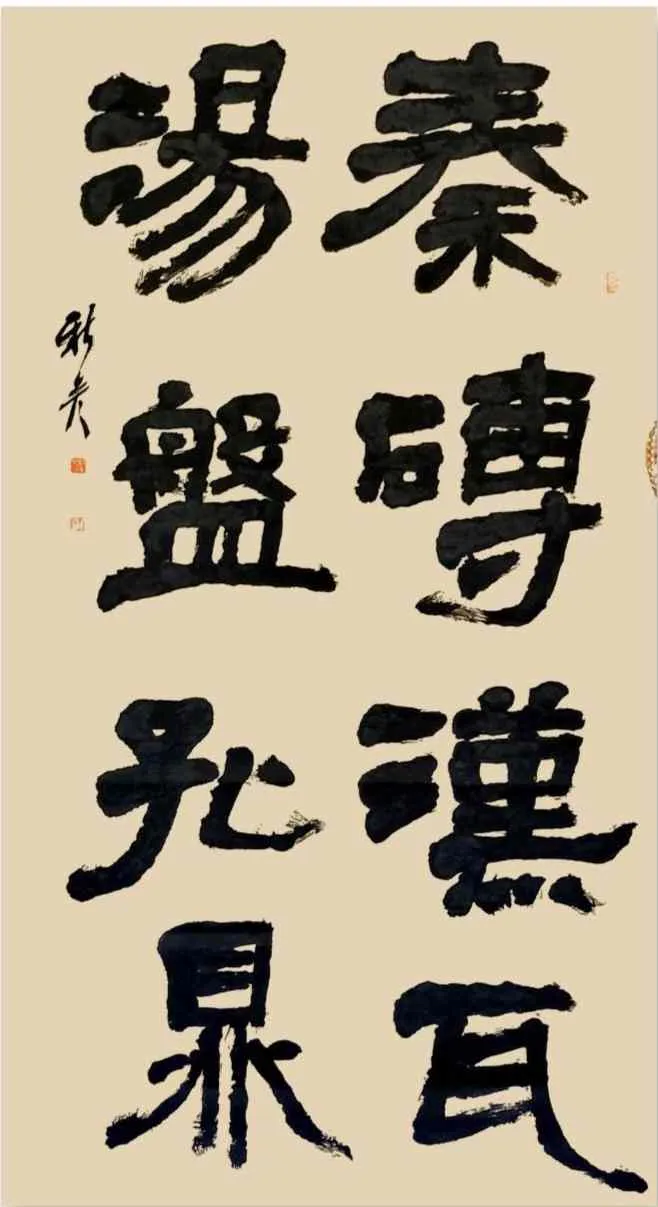 秦磚漢瓦
湯盤孔鼎